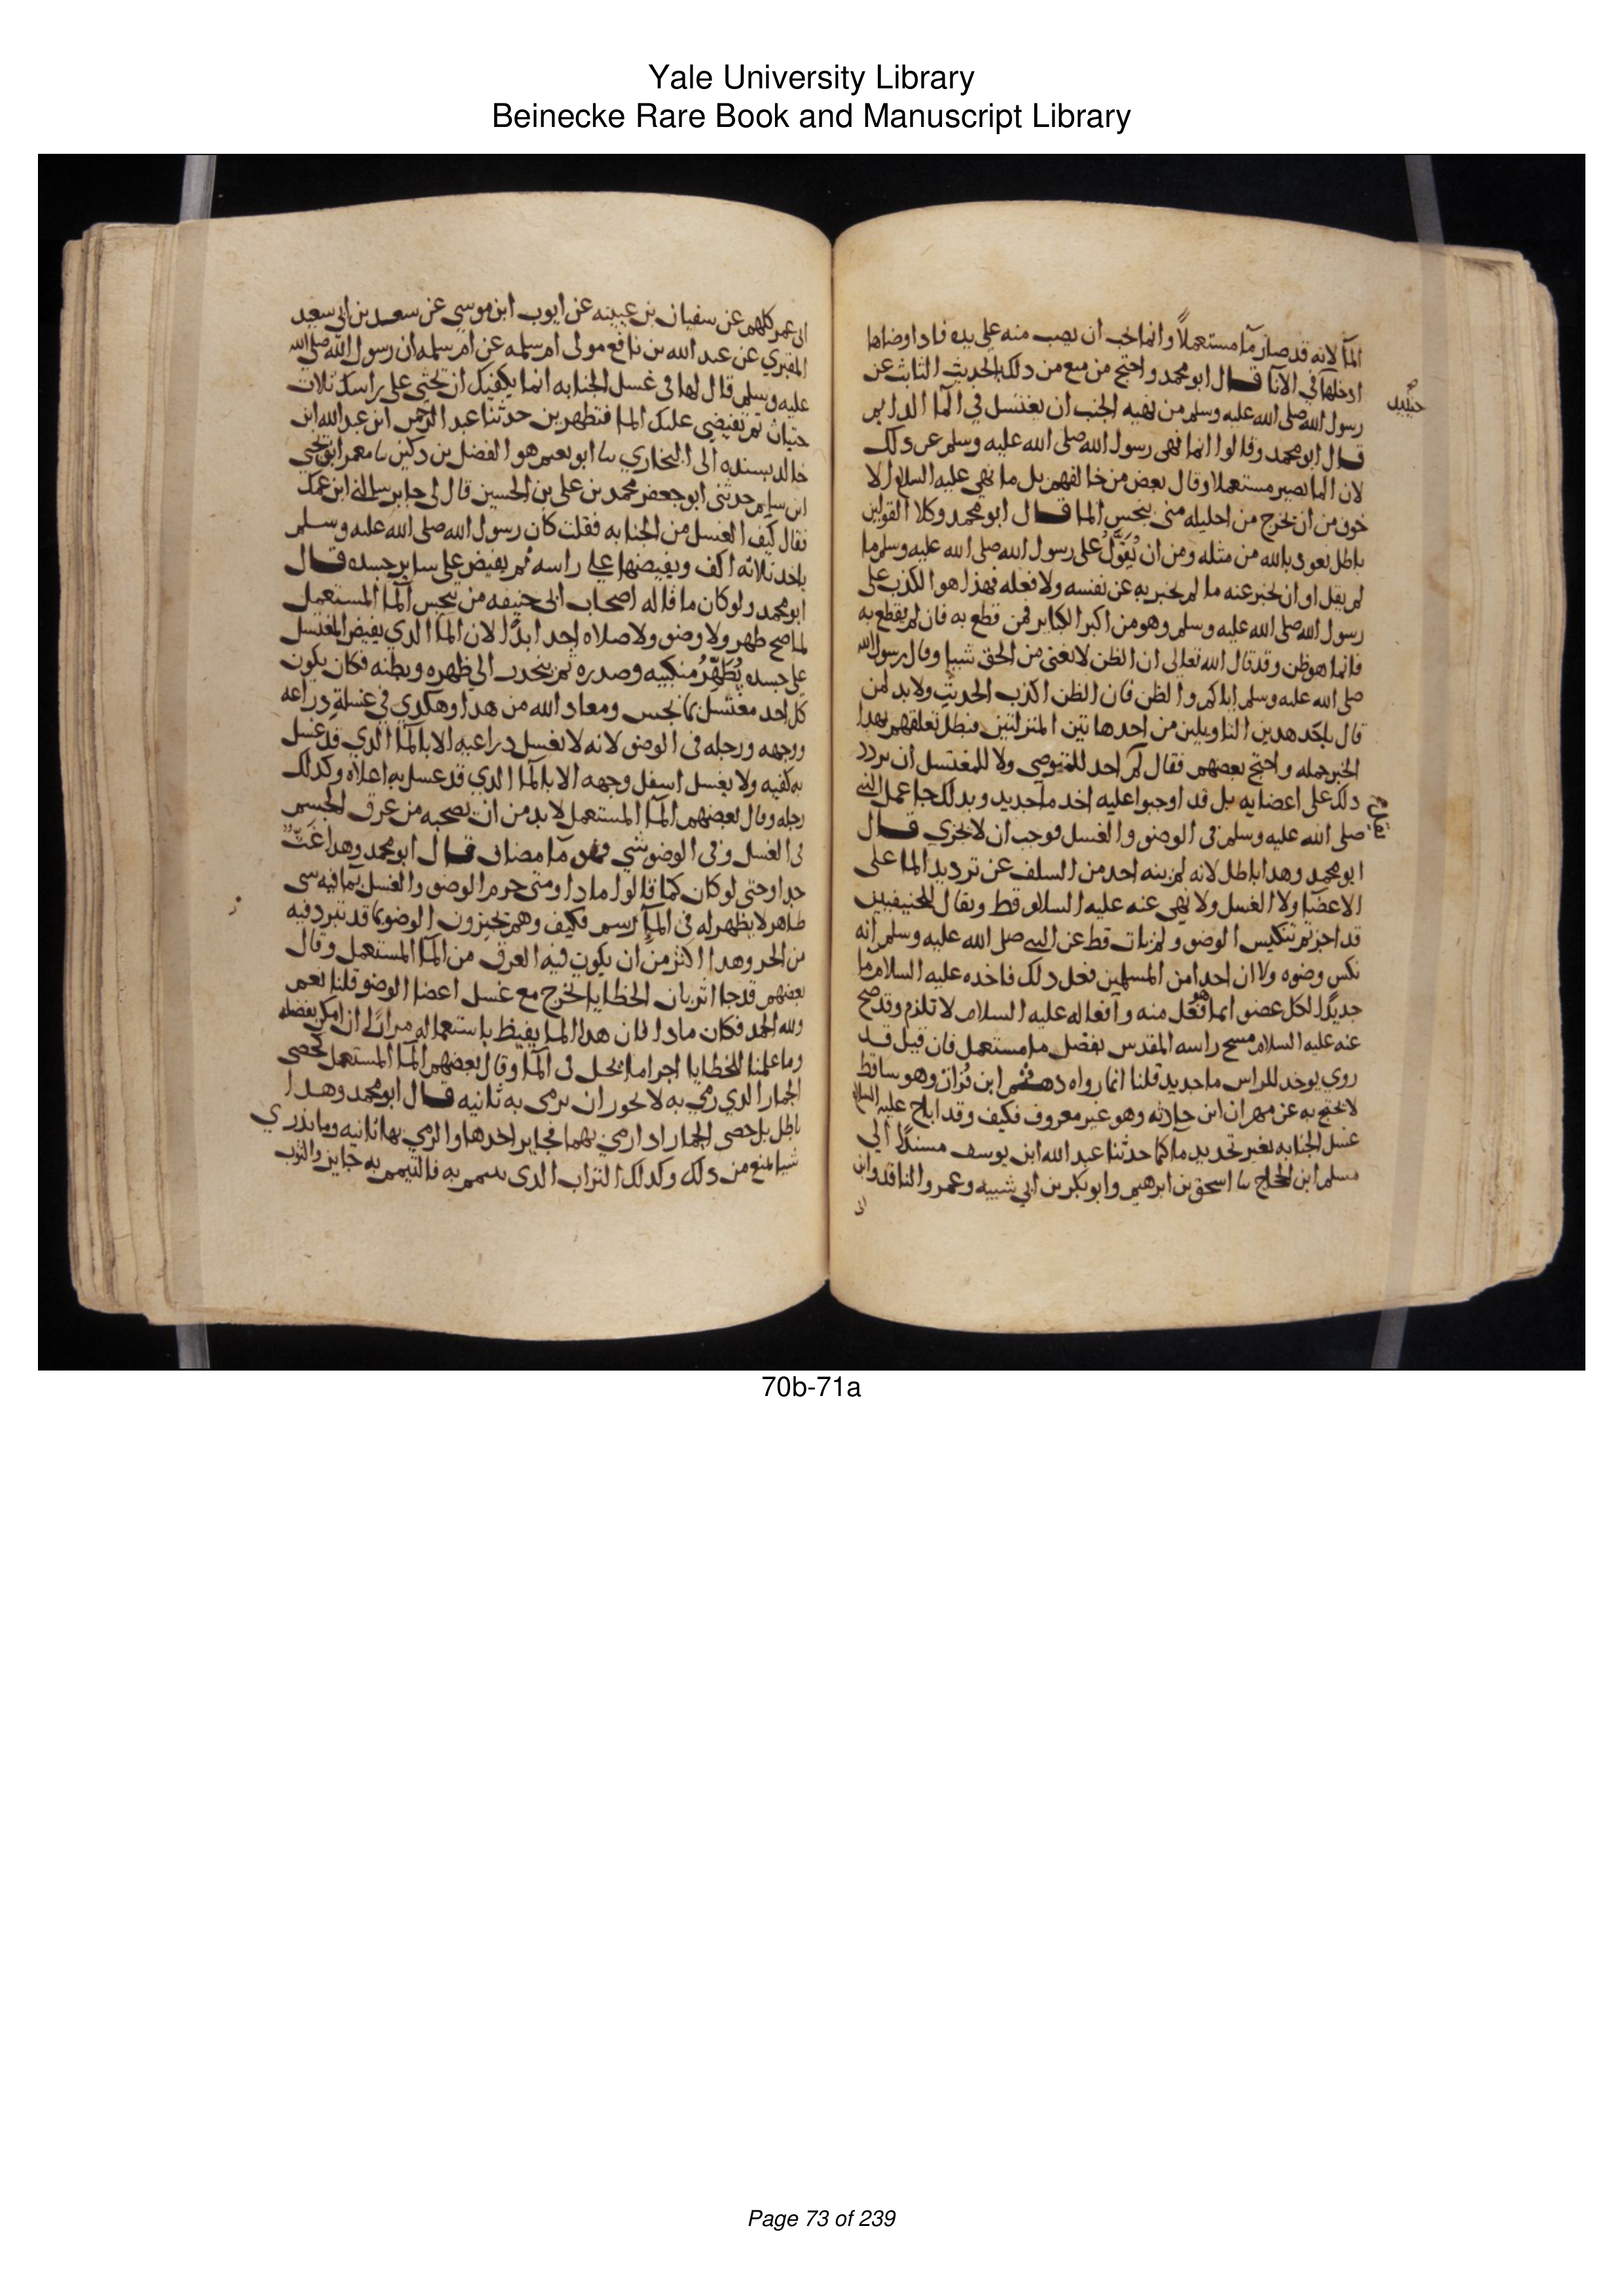 Yale University Library
Beinecke Rare Book and Manuscript Library
الما لانه قد صار ما مستعملا وانما يجب ان يصب منه على يده فاذا وضاها
ادخلها في الانا قال ابو محمد واحتج من منع من ذلك بالحديث الثابت عن
رسول الله صلى الله عليه وسلم من نهيه الجنب ان يغتسل في الما الدايم
قال ابو محمد وقالوا انما نهى رسول الله صلى الله عليه وسلم عن ذلك
لان الما يصير مستعملا وقال بعض من خالفهم بل ما نهى عليه السلام الا
خوف من ان يخرج من احليله منى ينجس الما قال ابو محمد وكلا القولين
باطل نعوذ بالله من مثله ومن ان نُقَوّلُ على رسول الله صلى الله عليه وسلم ما
لم يقل او ان نخبر عنه ما لم يخبر به عن نفسه ولا فعله فهذا هو الكذب على
رسول الله صلى الله عليه وسلم وهو من اكبر الكباير فمن قطع به فان لم يقطع به
فانما هو ظن وقد قال الله تعالى ان الظن لا يغنى من الحق شيا وقال رسول الله
صلى الله عليه وسلم اياكم والظن فان الظن اكذب الحديث ولا بد لمن
قال باحد هذين التاويلين من احد هاتين المنزلتين فبطل تعلقهم بهذا
الخبر جمله واحتج بعضهم فقال لم احد للمتوضي ولا للمغتسل ان يردد
ذلك على اعضايه بل قد اوجبوا عليه اخذ ما جديد وبذلك جا عمل النبي
صلى الله عليه وسلم في الوضو والغسل فوجب ان لا يجزي قال
ابو محمد وهذا باطل لانه لم ينه احد من السلف عن ترديد الما على
الاعضا ولا الغسل ولا نهى عنه عليه السلام قط ويقال للحنيفيين
قد اجزتم تنكيس الوضو ولم يات قط عن النبي صلى الله عليه وسلم انه
نكس وضوه ولا ان احدا من المسلمين فعل ذلك فاخذه عليه السلام ما
جديدا لكل عضو انما هو فعل منه وافعاله عليه السلام لا تلزم وقد صح
عنه عليه السلام مسح راسه المقدس بفضل ما مستعمل فان قيل قد
روي يوخذ للراس ما جديد قلنا انما رواه دهثم ابن قران وهو ساقط
لا يحتج به عن مهران ابن حارثه وهو غير معروف فكيف وقد اباح عليه السلام
غسل الجنابه بغير تجديد ما كما حدثنا عبد الله ابن يوسف مسندا الي
مسلم ابن الحجاج نا اسحق بن ابرهيم وابو بكر بن ابي شيبه وعمرو الناقد وابن
ابى عمر كلهم عن سفيان بن عيينه عن ايوب ابن موسى عن سعيد بن ابي سعيد
المقبري عن عبد الله بن نافع مولى ام سلمه عن ام سلمه ان رسول الله صلى الله
عليه وسلم قال لها في غسل الجنابه انما يكفيك ان تحثى على راسك ثلاث
حثيات ثم تفيضي عليك الما فتطهرين حدثنا عبد الرحمن ابن عبد الله ابن
خالد بسنده الى البخاري نا ابو نعيم هو الفضل بن دكين نا معمر ابن يحيى
ابن سام حدثنى ابو جعفر محمد بن على بن الحسين قال لى جابر سالنى ابن عمك
فقال كيف الغسل من الجنابه فقلت كان رسول الله صلى الله عليه وسلم
ياخذ ثلاثه اكف ويفيضها على راسه ثم يفيض على ساير جسده قال
ابو محمد ولو كان ما قاله اصحاب ابى حنيفه من ينجس الما المستعمل
لما صح طهر ولا وضو ولا صلاه احد ابدا لان الما الذي يفيض المغتسل
على جسده يُطَهِّرُ منكبيه وصدره ثم ينحدر الى ظهره وبطنه فكان يكون
كل احد مغتسل بما نجس ومعاذ الله من هذا وهكذي في غسله ذراعه
ووجهه ورجله في الوضو لانه لا يغسل ذراعيه الا بالما الذي قد غسل
به كفيه ولا يغسل اسفل وجهه الا بالما الذي قد غسل به اعلاه وكذلك
رجله وقال بعضهم الما المستعمل لا بد من ان يصحبه من عرق الجسم
في الغسل وفي الوضو شي فهو ما مضاف قال ابو محمد وهذا غث
جدا وحتى لو كان كما قالوا ماذا ومتى حرم الوضو والغسل بما فيه شى
طاهر لا يظهر له في الما رسم فكيف وهم يجيزون الوضو بما قد تبرد فيه
من الحر وهذا اكثر من ان يكون فيه العرق من الما المستعمل وقال
بعضهم قد جا اثر بان الخطايا تخرج مع غسل اعضا الوضو قلنا نعم
ولله الحمد فكان ماذا فان هذا الما يفيظ باستعماله مرارا ان امكن بفضله
وما علمنا للخطايا اجراما تحل في الما وقال بعضهم الما المستعمل كحصى
الجمار الذي رمي به لا يجوز ان يرمى به ثانيه قال ابو محمد وهذا
باطل بل حصى الجمار اذا رمي بهما فجايز اخذها والرمي بها ثانيه وما ندري
شيا يمنع من ذلك وكذلك التراب الذى تيمم به فالتيمم به جايز والثوب
70b-71a
Page 73 of 239